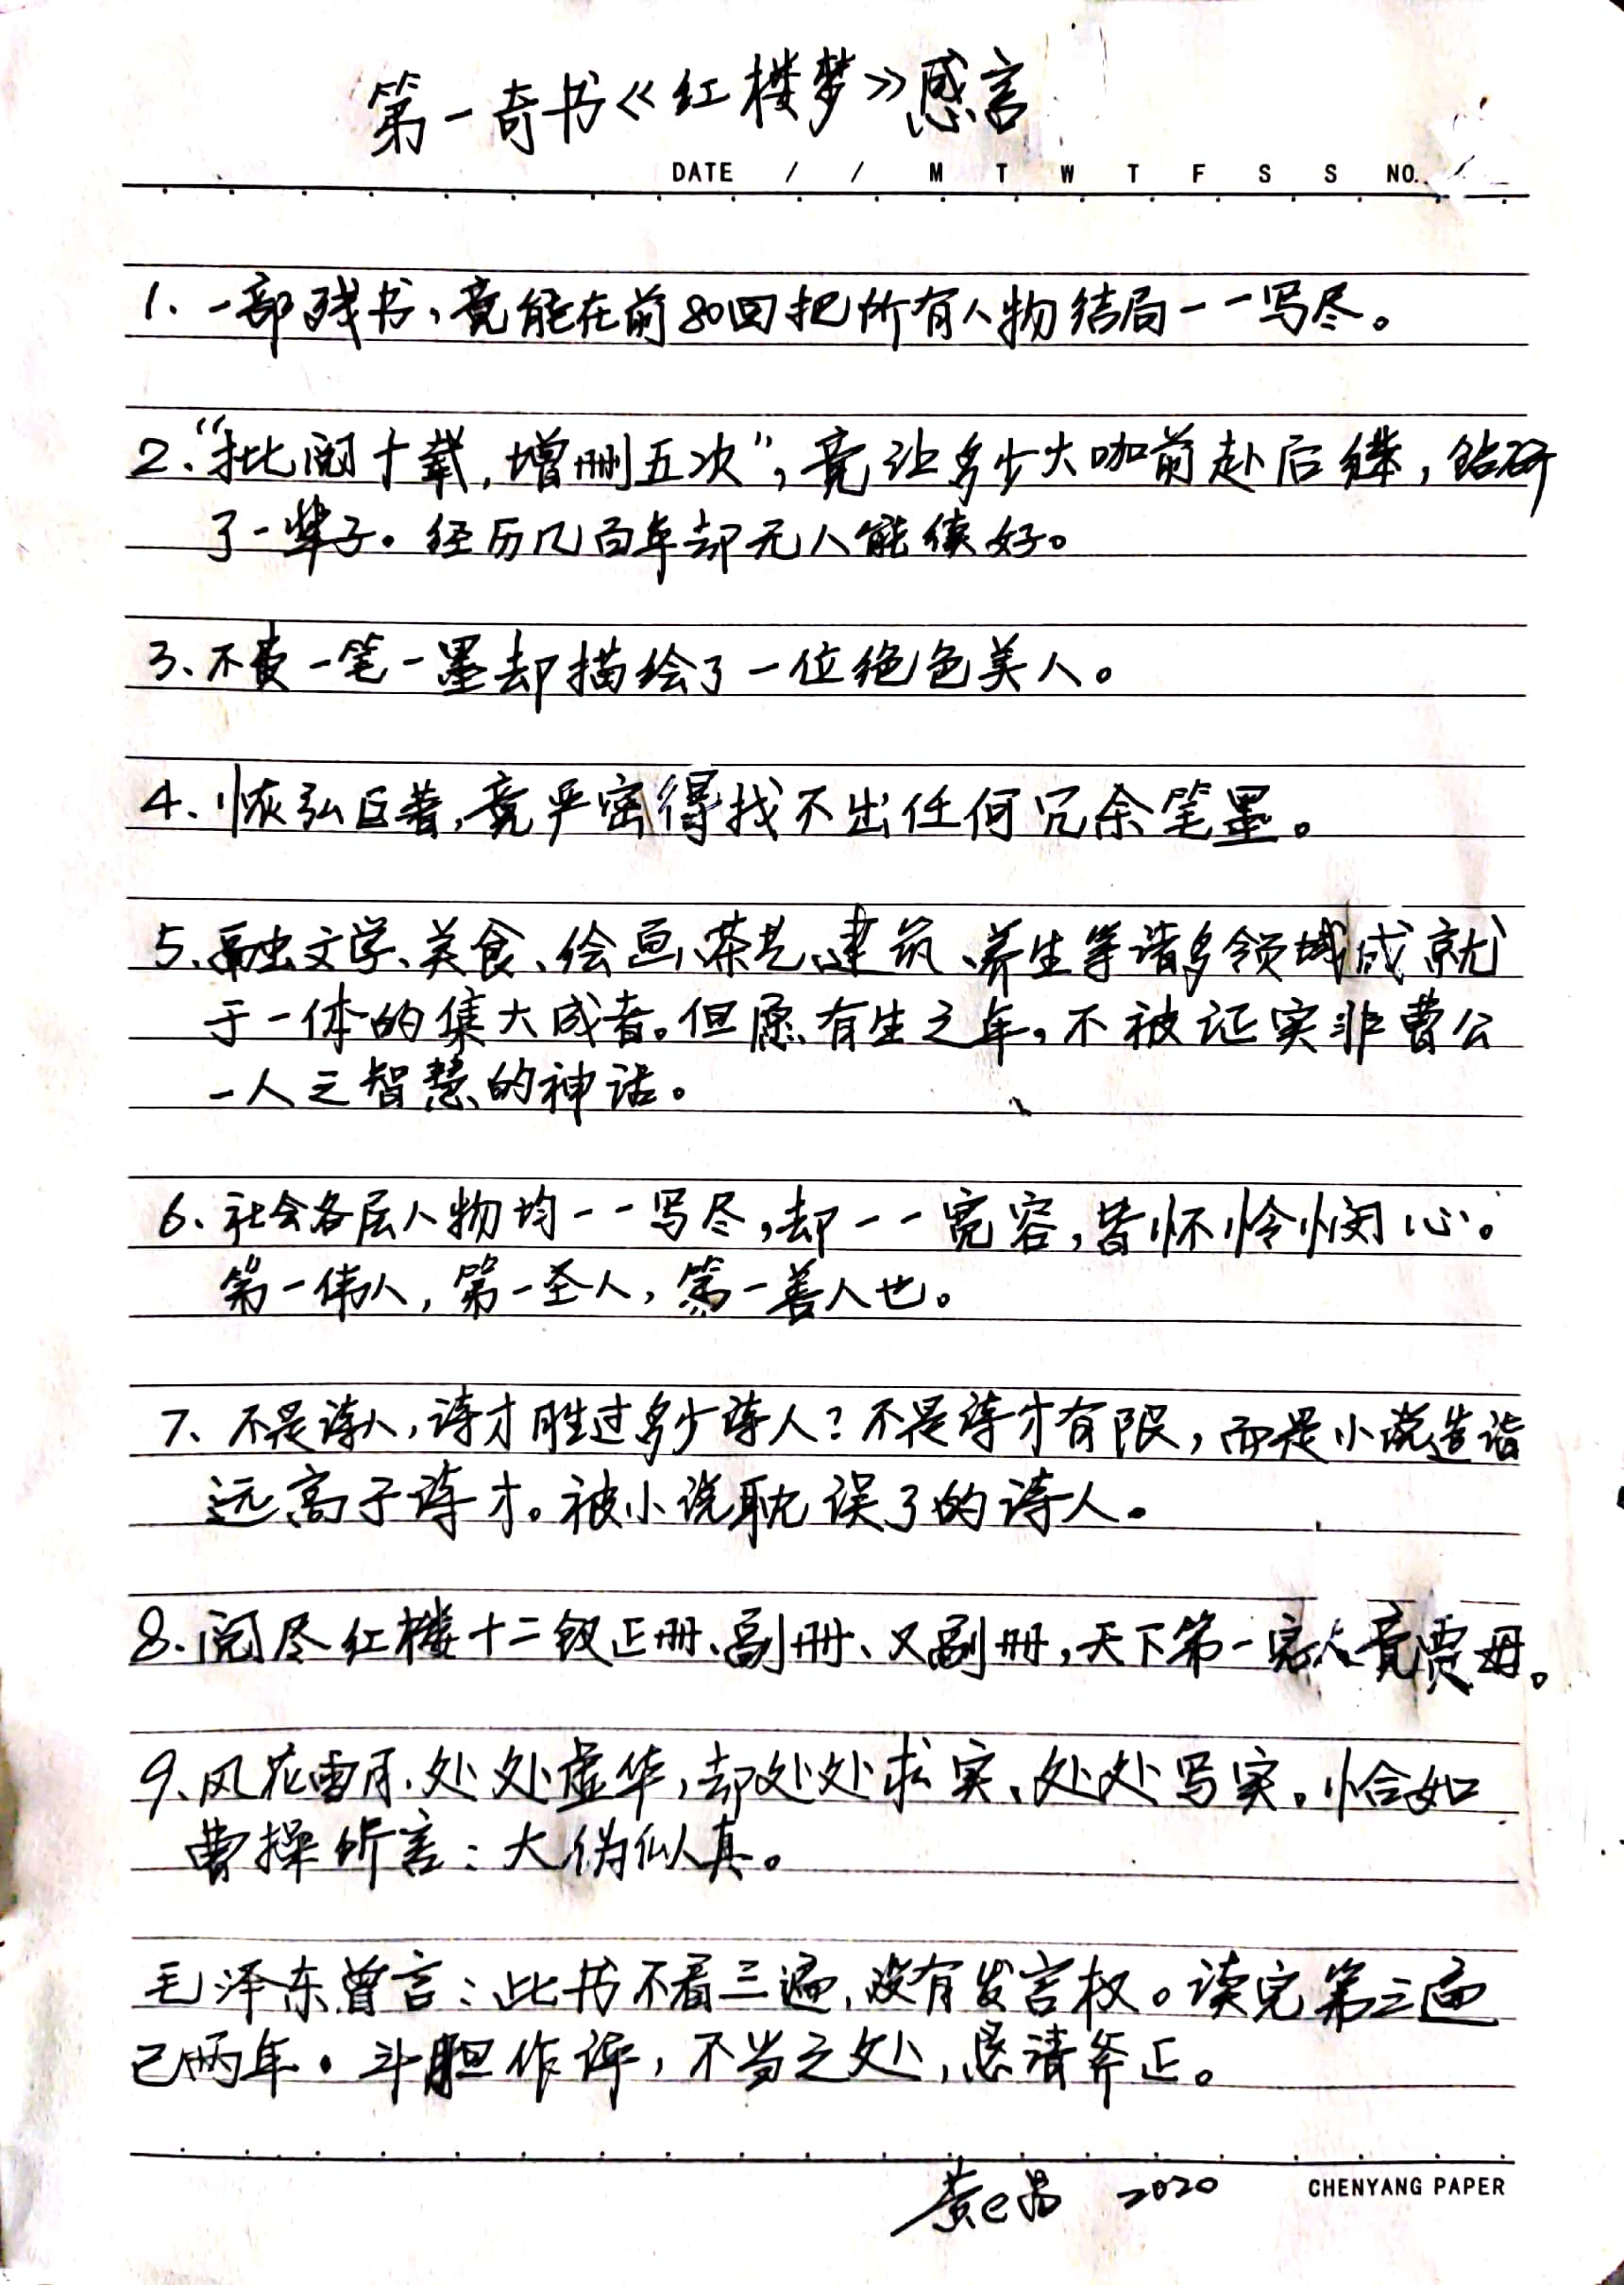 第一奇书《红楼梦》感言
DATE / / M T W T F S S NO.
1、一部残书，竟能在前80回把所有人物结局一一写尽。
2、“批阅十载，增删五次”，竟让多少大咖前赴后继，钻研
了一辈子。经历几百年却无人能续好。
3、不费一笔一墨却描绘了一位绝色美人。
4、恢弘巨著，竟严密得找不出任何冗余笔墨。
5、融文学、美食、绘画、茶艺、建筑、养生等诸多领域成就
于一体的集大成者。但愿有生之年，不被证实非曹公
一人之智慧的神话。
6、社会各层人物均一一写尽，却一一宽容，皆怀怜悯心。
第一伟人，第一圣人，第一善人也。
7、不是诗人，诗才胜过多少诗人？不是诗才有限，而是小说造诣
远高于诗才。被小说耽误了的诗人。
8、阅尽红楼十二钗正册、副册、又副册，天下第一完人竟贾母。
9、风花雪月、处处虚华，却处处求实、处处写实。恰如
曹操所言：大伪似真。
毛泽东曾言：此书不看三遍，没有发言权。读完第三遍
已两年。斗胆作评，不当之处，恳请斧正。
黄 2020
CHENYANG PAPER